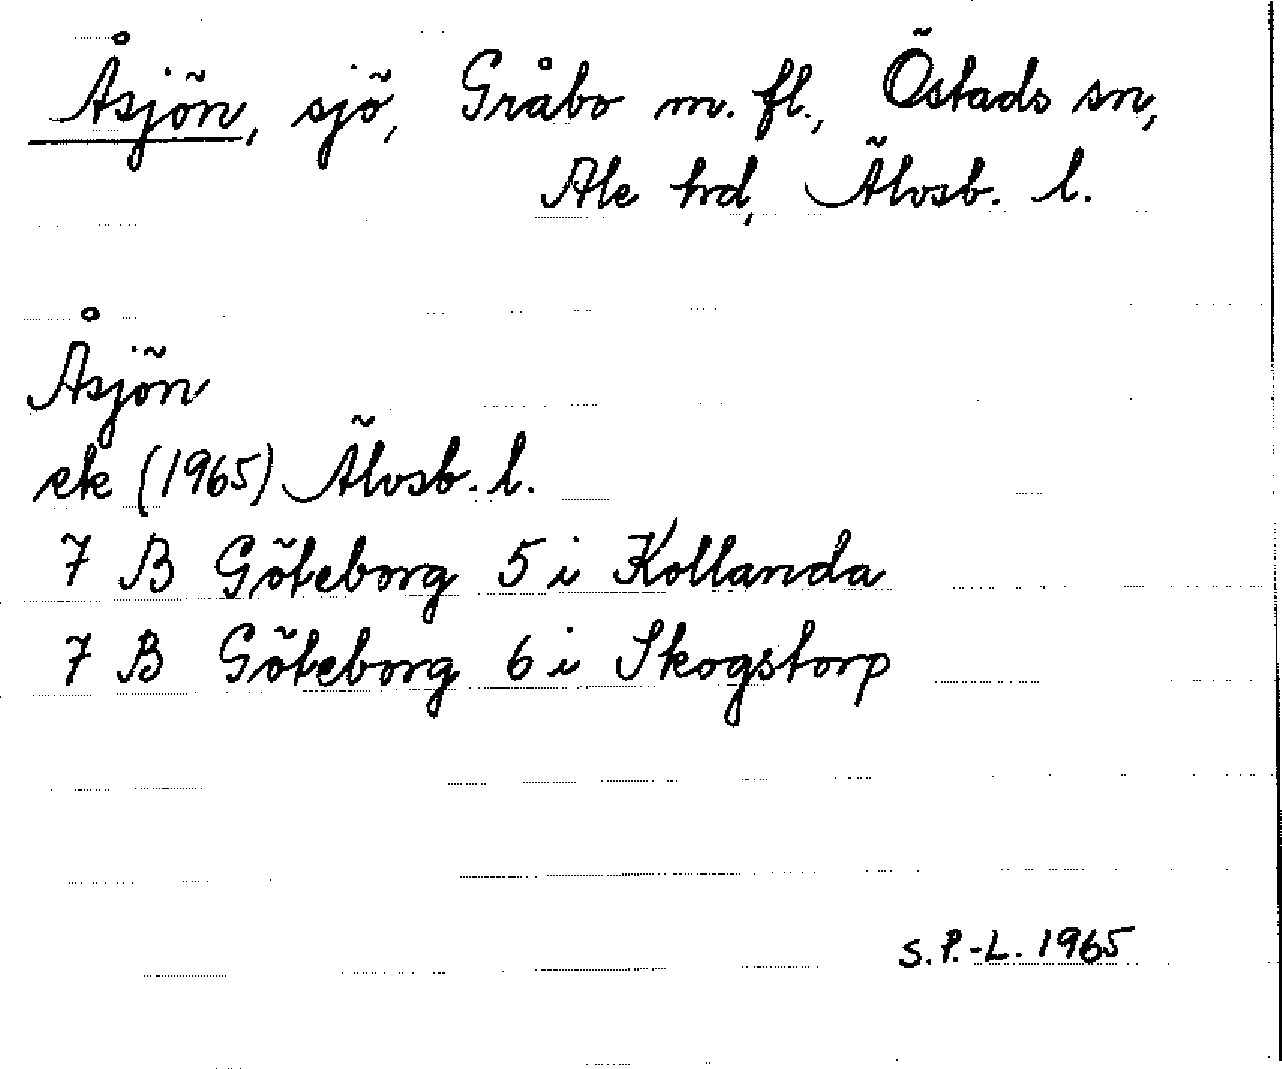 Åsjön, sjö, Gråbo m. fl., Östads sn,
Ale hd, Älvsb. l.
Åsjön
ek (1965) Älvsb. l.
7 B Göteborg 5 i Kollanda
7 B Göteborg 6 i Skogstorp
S. P.-L. 1965